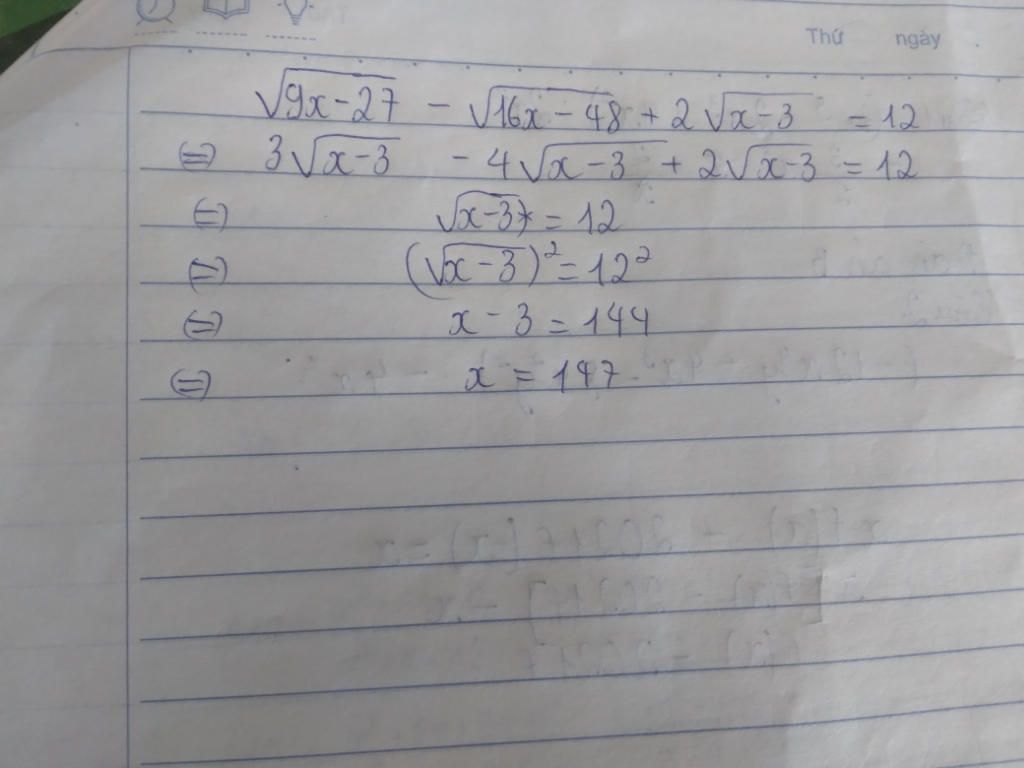 Thứ ngày
√(9x-27) - √(16x-48) + 2√(x-3) = 12
⇔ 3√(x-3) - 4√(x-3) + 2√(x-3) = 12
⇔ √(x-3) = 12
⇔ (√(x-3))² = 12²
⇔ x - 3 = 144
⇔ x = 147